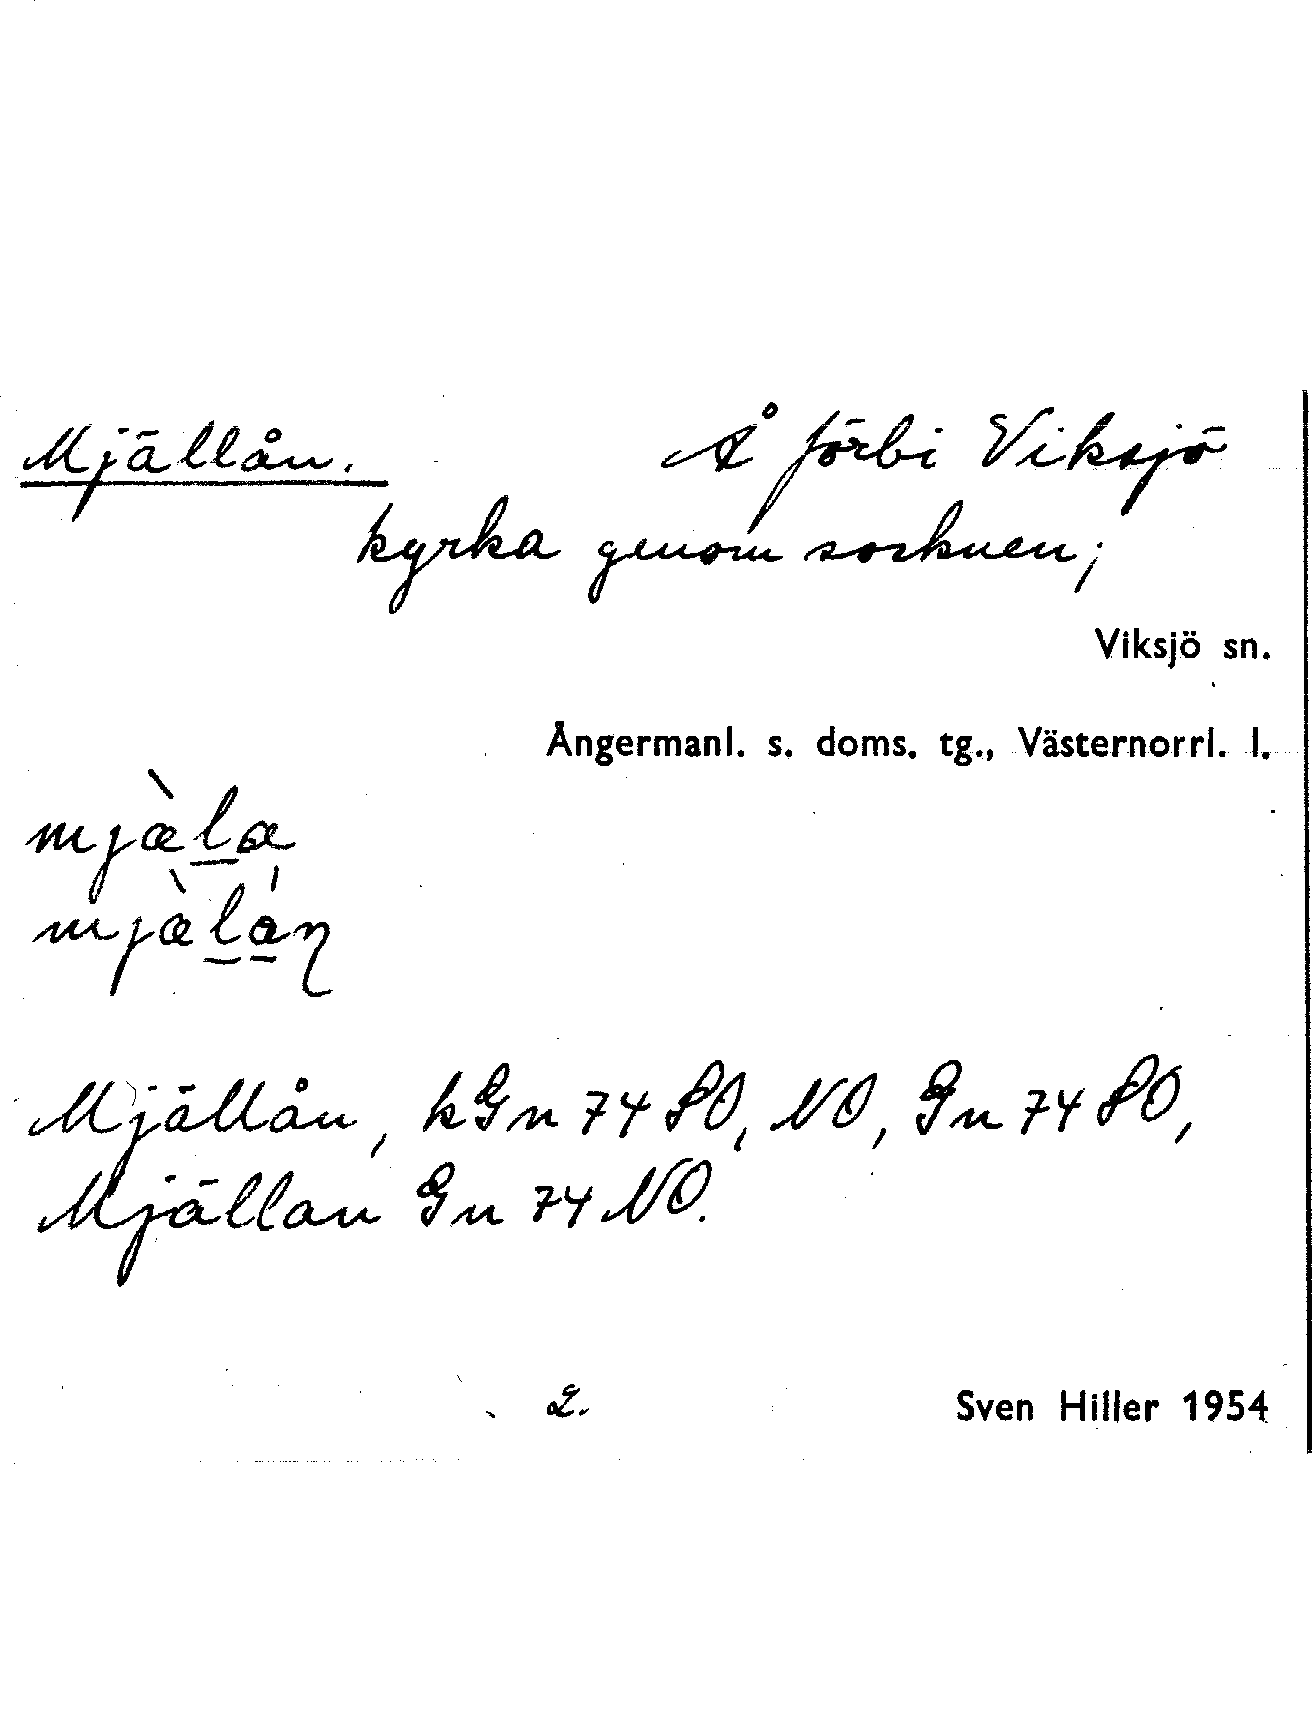 Mjällån. Å förbi Viksjö
kyrka genom socknen;
Viksjö sn.
Ångermanl. s. doms. tg., Västernorrl. l.
mjæ̀la
mjæ̀lån
Mjällån, kGn 74 SO, NO, Gn 74 SO,
Mjällan Gn 74 NO.
2.
Sven Hiller 1954